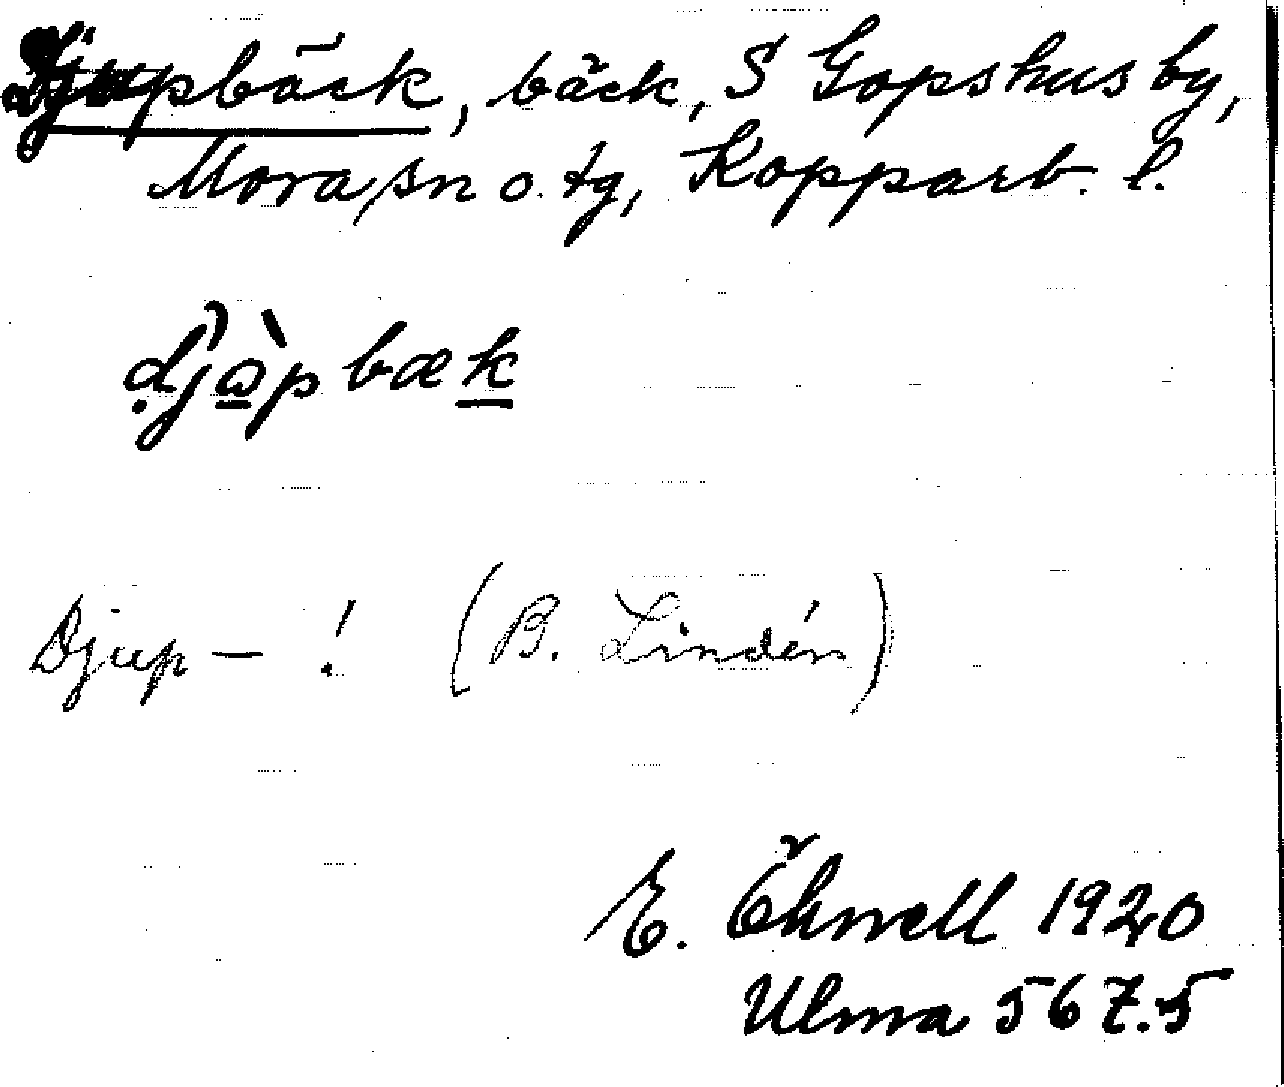 Djupbäck, bäck, S Gopshus by,
Mora sn o. tg, Kopparb. l.
djäpbæk
Djup– ! (B. Lindén)
E. Öhrvall 1920
Ulma 567.5